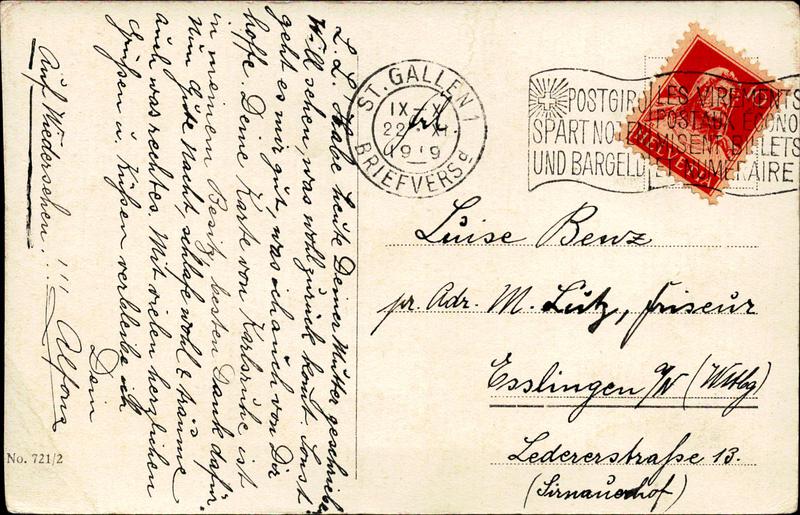 L. L. Habe heute Deiner Mutter geschrieben
Will sehen, was wohl zurück komt. Sonst
geht es mir gut, was ich auch von Dir
hoffe. Deine Karte von Karlsruhe ist
in meinem Besitz, besten Dank dafür.
Nun Gute Nacht, schlafe wohl & träume
auch was rechtes. Mit vielen herzlichen
Grüßen u. Küßen verbleibe ich
Dein
Alfons
Auf Wiedersehen!!!
No. 721/2
ST. GALLEN 1
IX-X
22
1919
BRIEFVERSd
POSTGIR
SPART NOTE
UND BARGELD
LES VIREMENTS
POSTAUX ÉCONO
MISENT BILLETS
ET NUMERAIRE
HELVETIA
Luise Benz
pr. Adr. M. Lutz, friseur
Esslingen a/N (Wttbg)
Ledererstraße 13.
(Sirnauerhof)